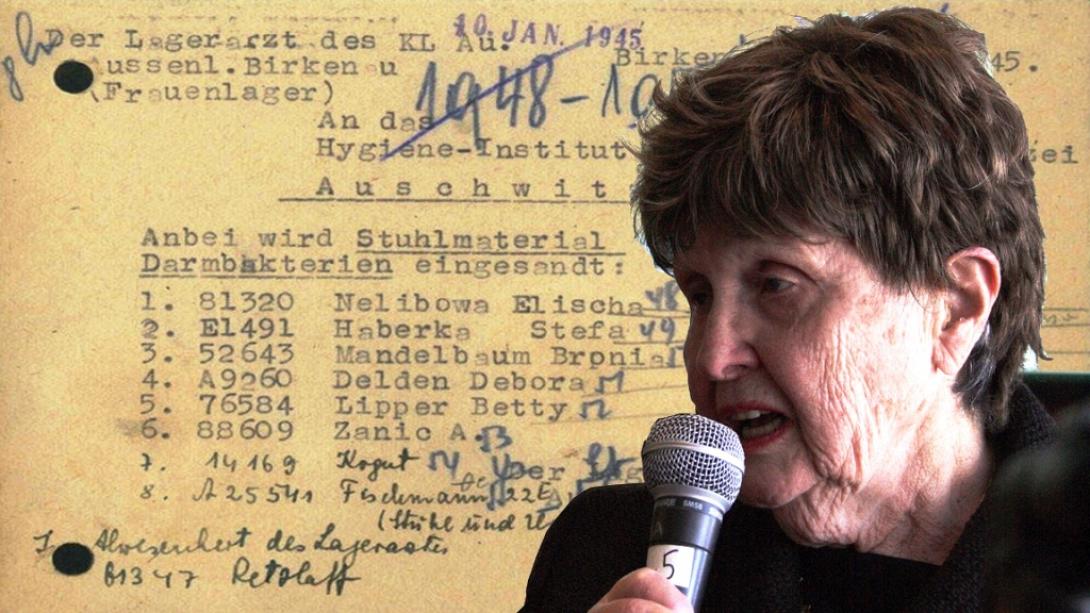 Der Lagerarzt des KL Au.
10. JAN. 1945
Birken 45.
Aussenl.Birkenau
(Frauenlager)
1948-19
An das
Hygiene-Institut
Auschwit
Anbei wird Stuhlmaterial
Darmbakterien eingesandt:
1. 81320 Nelibowa Elischa 48
2. E1491 Haberka Stefa 49
3. 52643 Mandelbaum Bronia
4. A9260 Delden Debora 51
5. 76584 Lipper Betty 52
6. 88609 Zanic A. 53
7. 14169 Kogut 54 Der
8. A25541 Fischmann
(Stühle und
I. Abwesenheit des Lagerarztes
B1347 Retzlaff
5